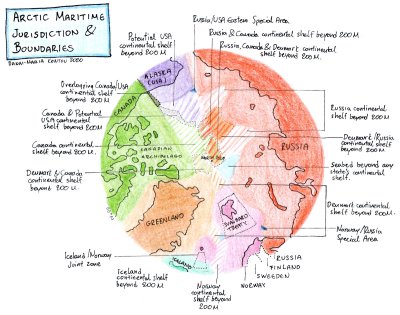 ARCTIC MARITIME
JURISDICTION &
BOUNDARIES
2020
Potential USA
continental shelf
beyond 200 M
Russia/USA Eastern Special Area
Russia & Canada continental shelf beyond 200 M.
Russia, Canada & Denmark continental
shelf beyond 200 M.
Overlapping Canada/USA
continental shelf
beyond 200 M
Canada & Potential
USA continental
shelf beyond 200 M
Canada continental
shelf beyond 200 M.
Denmark & Canada
continental shelf
beyond 200 M.
Iceland/Norway
Joint zone
Iceland
continental shelf
beyond 200 M
Norway
continental
shelf beyond
200 M
ALASKA
(USA)
CANADA
CANADIAN
ARCHIPELAGO
GREENLAND
ICELAND
SVALBARD
TREATY
RUSSIA
Russia continental
shelf beyond
200 M
Denmark/Russia
continental shelf
beyond 200 M
Seabed beyond any
state's continental
shelf.
Denmark continental
shelf beyond 200M.
Norway/Russia
Special Area
RUSSIA
FINLAND
SWEDEN
NORWAY